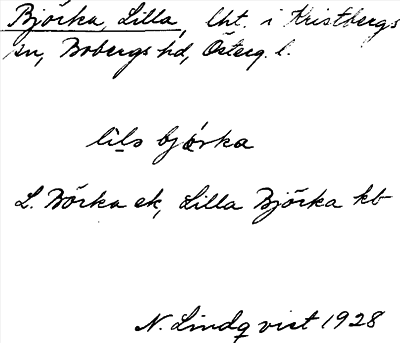 Björka, Lilla, lht. i Kristbergs
sn, Bobergs hd, Österg. l.
lìls bjórka
L. Börka ek, Lilla Björka kb
N. Lindqvist 1928